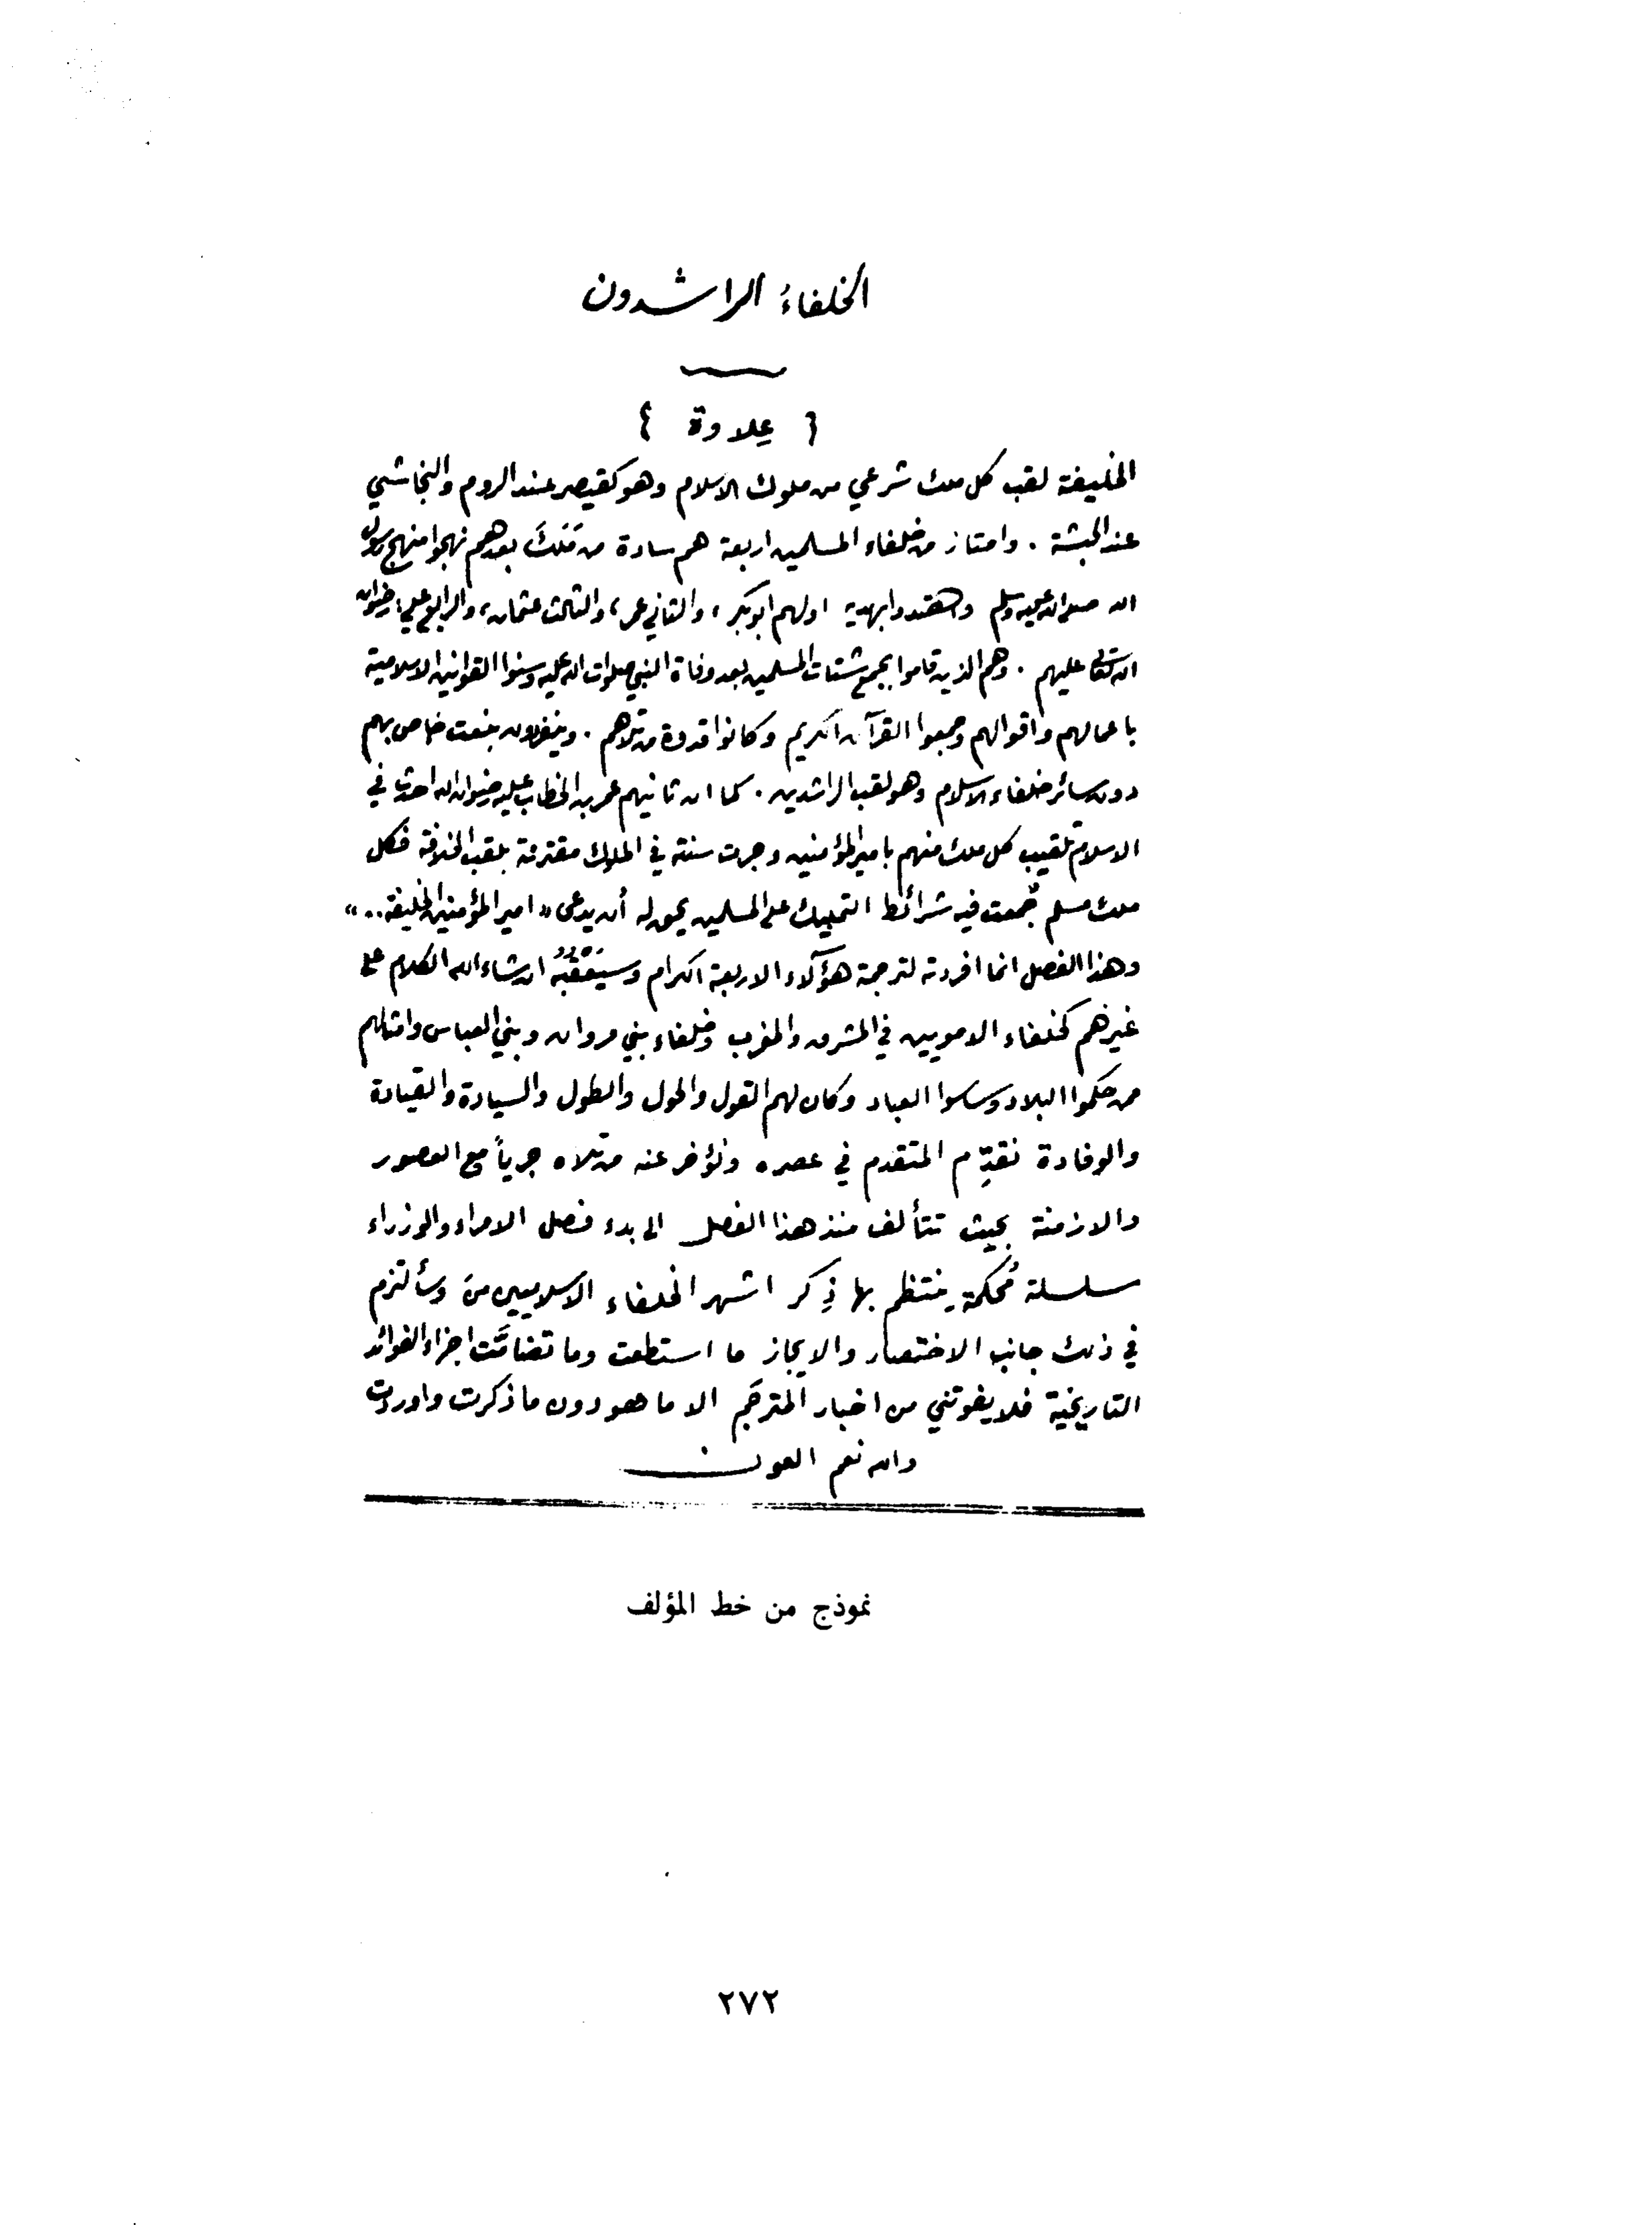 الخلفاءُ الراشدون
{ عِلاوة }
الخليفة لقب كل ملك شرعي من ملوك الاسلام وهو كقيصر عند الروم والنجاشي
عند الحبشة . وامتاز من خلفاء المسلمين اربعة هم سادة من مَلَكَ بعدهم نهجوا منهج رسول
الله صلى الله عليه وسلم واهتدوا بهديه اولهم ابو بكر ، والثاني عمر ، والثالث عثمان ، والرابع علي ، رضوان
الله تعالى عليهم . وهم الذين قاموا بجمع شتات المسلمين بعد وفاة النبي صلوات الله عليه وسنوا القوانين الاسلامية
باعمالهم واقوالهم وجمعوا القرآن الكريم وكانوا قدوة من تلاهم . وينفردون بنعت خاص بهم
دون سائر خلفاء الاسلام وهو لقب الراشدين . كما ان ثانيهم عمر بن الخطاب عليه رضوان الله احدث في
الاسلام تلقيب كل ملك منهم بامير المؤمنين وجرت سنته في الملوك مقترنة بلقب الخلافة فكل
ملك مسلم جُمعت فيه شرائط التمليك على المسلمين يحق له أن يدعى « امير المؤمنين الخليفة .. »
وهذا الفصل انما افردته لترجمة هؤلاء الاربعة الكرام وسيَعْقُبُهُ ان شاء الله الكلام على
غيرهم كخلفاء الامويين في المشرق والمغرب وخلفاء بني مروان وبني العباس وامثالهم
ممن حكموا البلاد وساسوا العباد وكان لهم القول والحول والطول والسيادة والقيادة
والوفادة نقدِّم المتقدم في عصره ونؤخر عنه من تلاه جرياً مع العصور
والازمنة بحيث تتألف منذ هذا الفصل الى بدء فصل الامراء والوزراء
سلسلة مُحكمة ينتظم بها ذِكر اشهر الخلفاء الاسلاميين وسألتزم
في ذلك جانب الاختصار والايجاز ما استطعت وما تضامَّت اجزاء الفوائد
التاريخية فلا يفوتني من اخبار المترجَم الا ما هو دون ما ذكرت واوردت
والله نعم العون
نموذج من خط المؤلف
٢٧٢